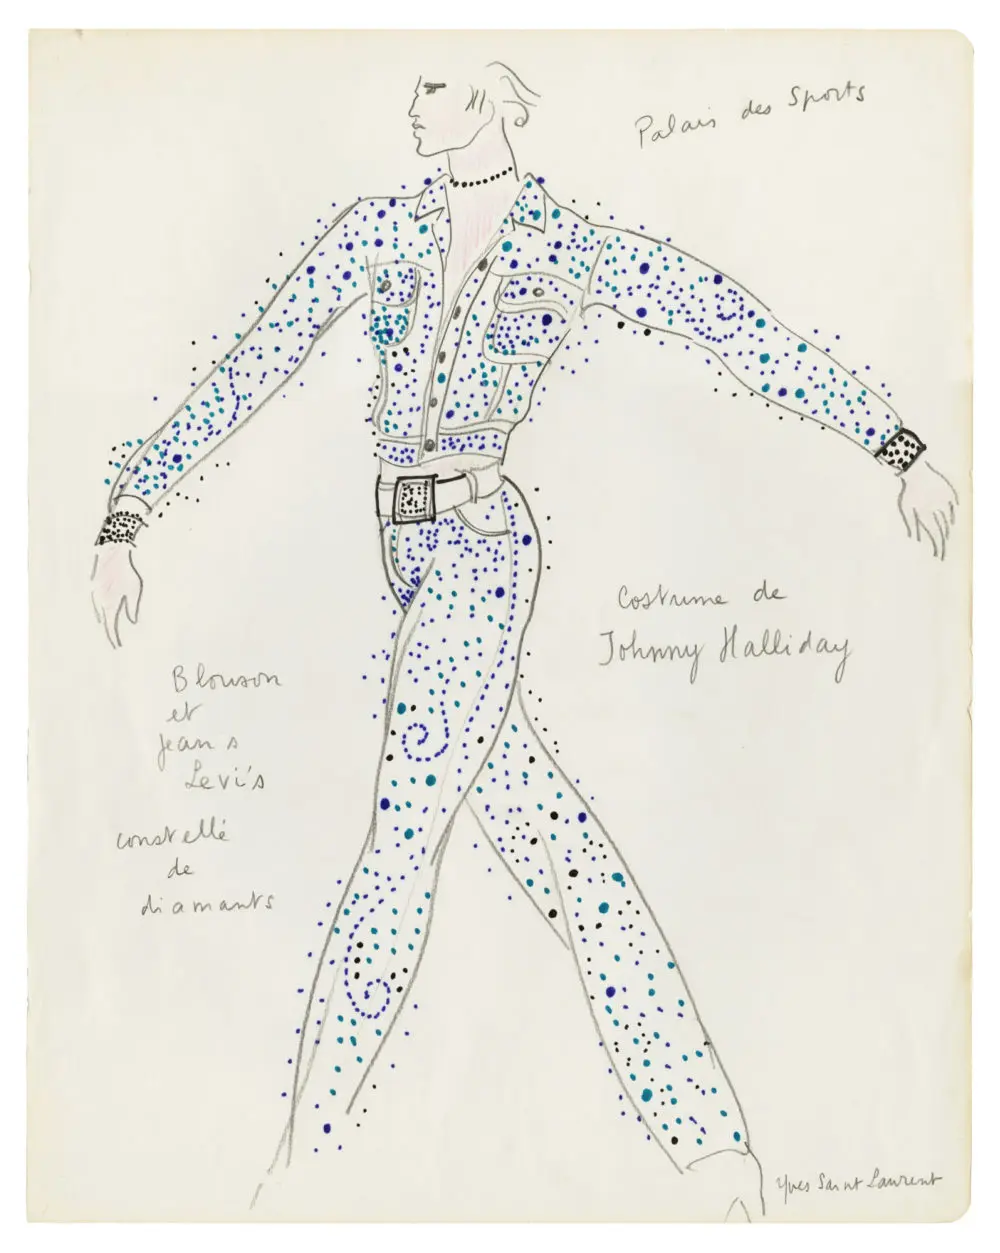 Palais des Sports
Costume de
Johnny Halliday
Blouson
et
jeans
Levi's
constellé
de
diamants
Yves Saint Laurent